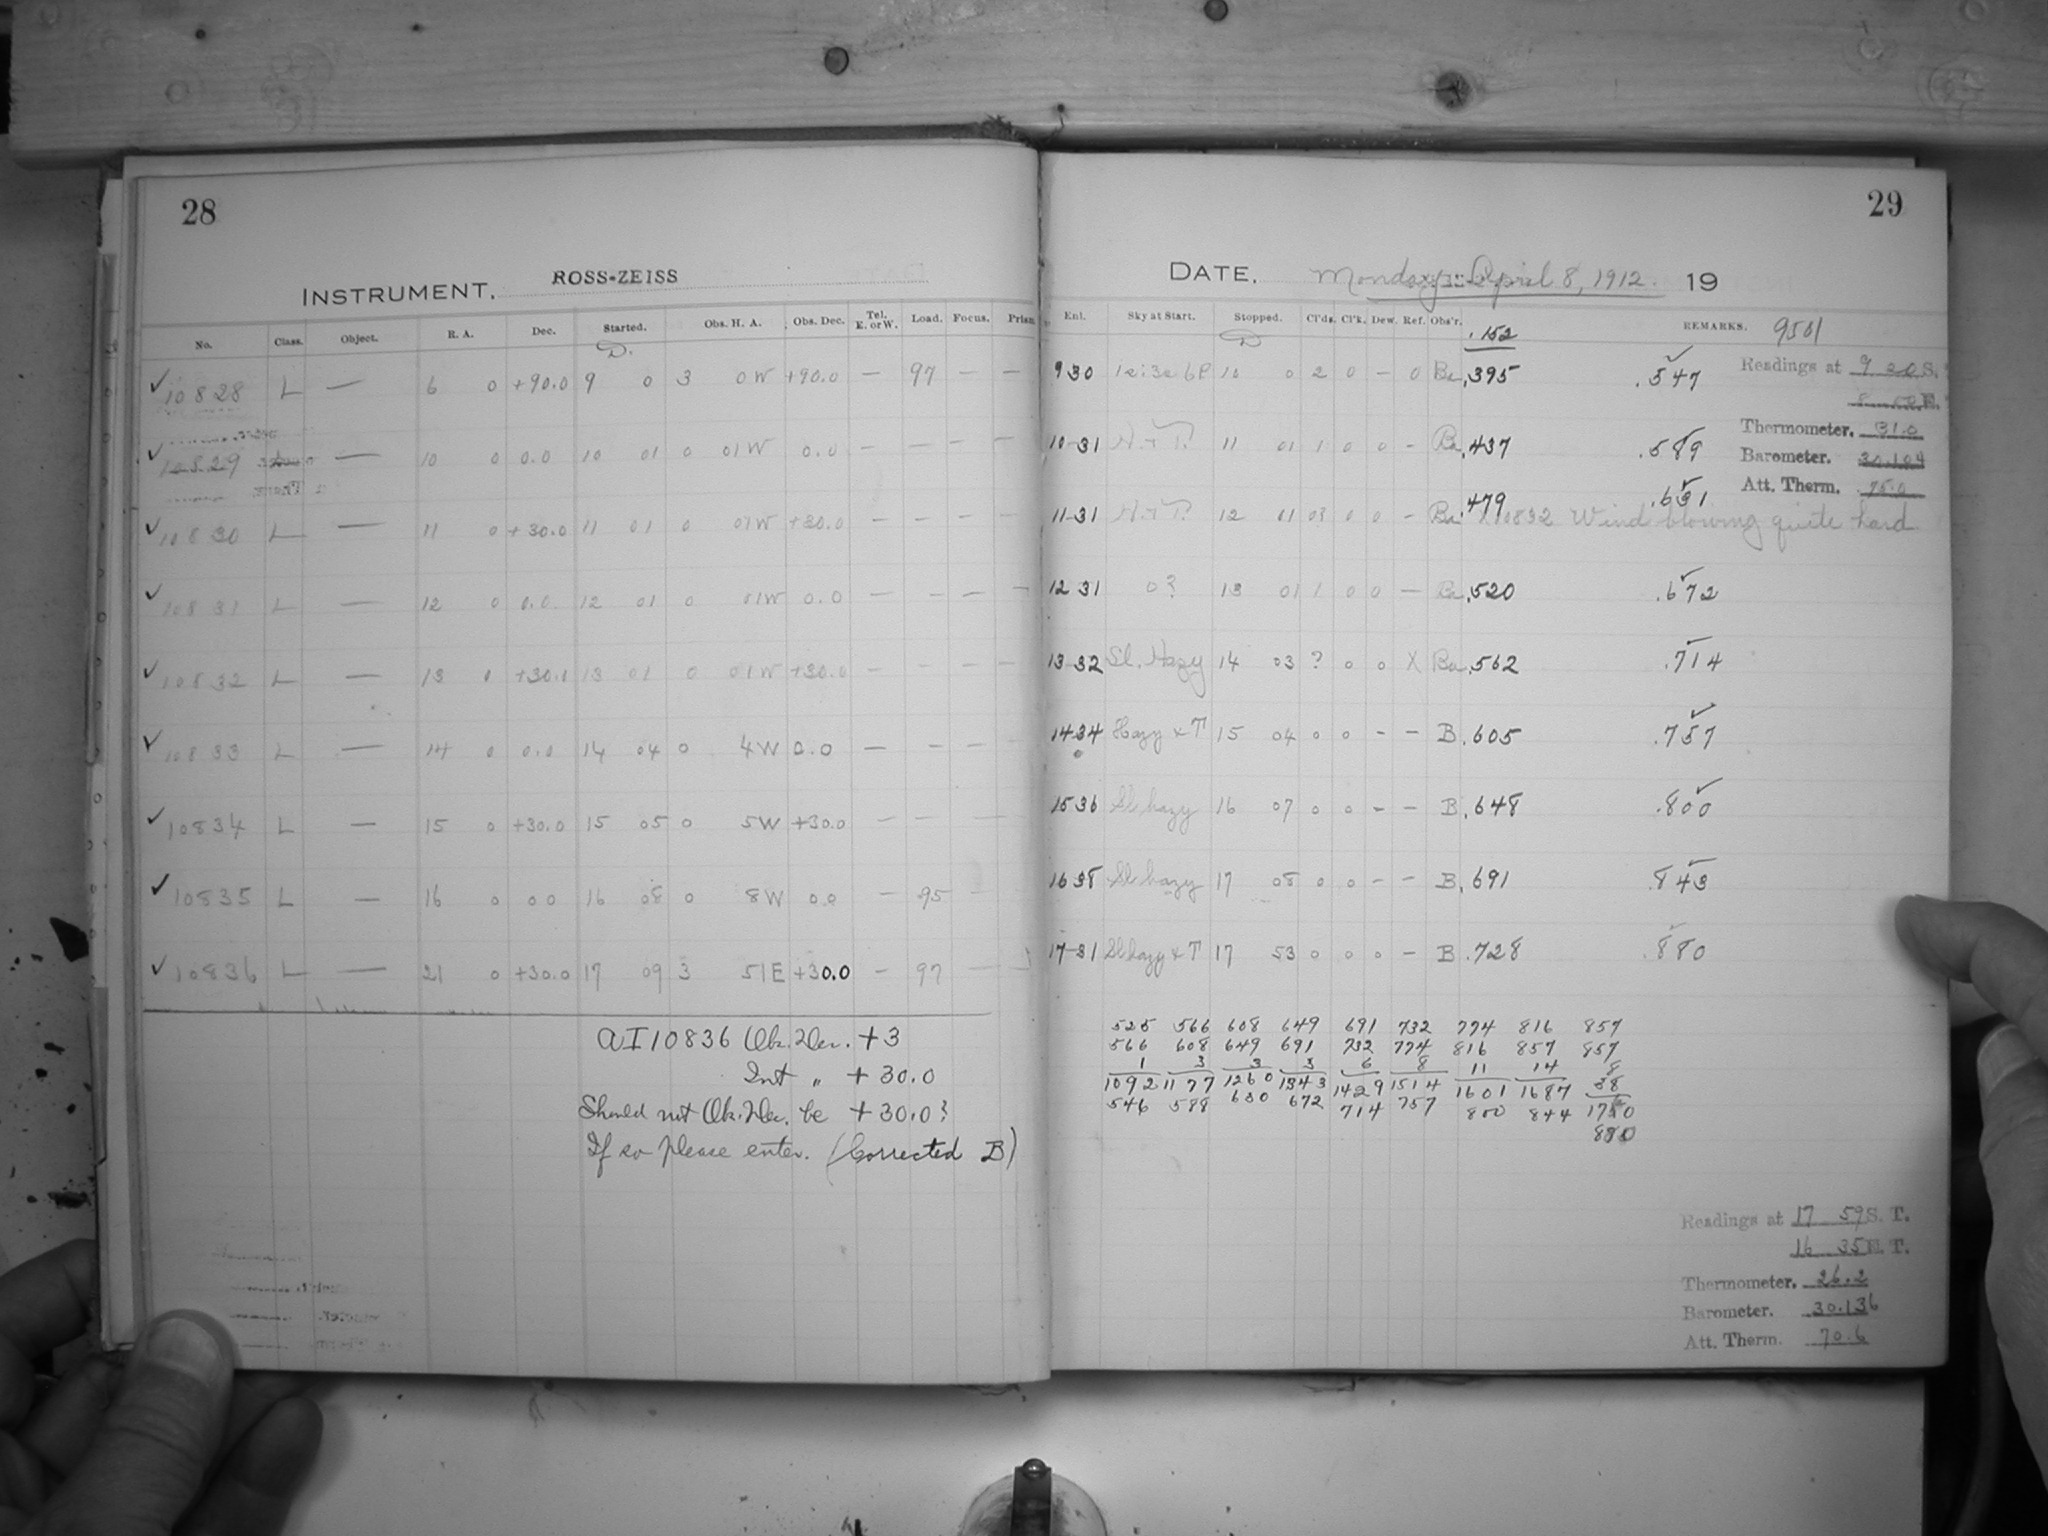 28
INSTRUMENT. ROSS-ZEISS
No. Class. Object. R. A. Dec. Started. Obs. H. A. Obs. Dec. Tel. E. or W. Load. Focus. Prism
D.
✓ 10828 L — 6 0 +90.0 9 0 3 0 W +90.0 — 97 — —
10829 — 10 0 0.0 10 01 0 01 W 0.0 — — — —
✓ 10830 L — 11 0 +30.0 11 01 0 01 W +30.0 — — — —
✓ 10831 L — 12 0 0.0 12 01 0 01 W 0.0 — — — —
✓ 10832 L — 13 0 +30.0 13 01 0 01 W +30.0 — — — —
✓ 10833 L — 14 0 0.0 14 04 0 4 W 0.0 — — — —
✓ 10834 L — 15 0 +30.0 15 05 0 5 W +30.0 — — — —
✓ 10835 L — 16 0 0 0 16 08 0 8 W 0.0 — 95 —
✓ 10836 L — 21 0 +30.0 17 09 3 51 E +30.0 — 97 —
AI 10836 Ob. Dec. +3
Int " + 30.0
Should not Ob. Dec. be + 30.0?
If so please enter. (Corrected B)
29
DATE. Monday April 8, 1912. 19
Enl. Sky at Start. Stopped. Cl'ds. Cl'k. Dew. Ref. Obs'r. REMARKS. 9501
D .152
9 30 10 0 2 0 — 0 Ba .395 .547
Readings at 9 20 S.
Thermometer. 31.0
10-31 H. + T. 11 01 1 0 0 — Ba .437 .589
Barometer. 30.104
Att. Therm. 75.0
11-31 H. + T. 12 01 03 0 0 — Ba .479 .631
X10832 Wind blowing quite hard
12 31 0? 13 01 1 0 0 — Ba .520 .672
13-32 Sl. Hazy 14 03 ? 0 0 X Ba .562 .714
14 34 Hazy + T 15 04 0 0 — — B .605 .757
15 36 Sl hazy 16 07 0 0 — — B .648 .800
16 38 Sl hazy 17 08 0 0 — — B .691 .843
17-31 Sl hazy + T 17 53 0 0 0 — B .728 .880
525 566 608 649 691 732 774 816 857
566 608 649 691 732 774 816 857 857
1 3 3 3 6 8 11 14 8
38
1092 1177 1260 1343 1429 1514 1601 1687 1760
546 588 630 672 714 757 800 844 880
Readings at 17 59 S. T.
16 35 E. T.
Thermometer. 26.2
Barometer. 30.136
Att. Therm. 70.6